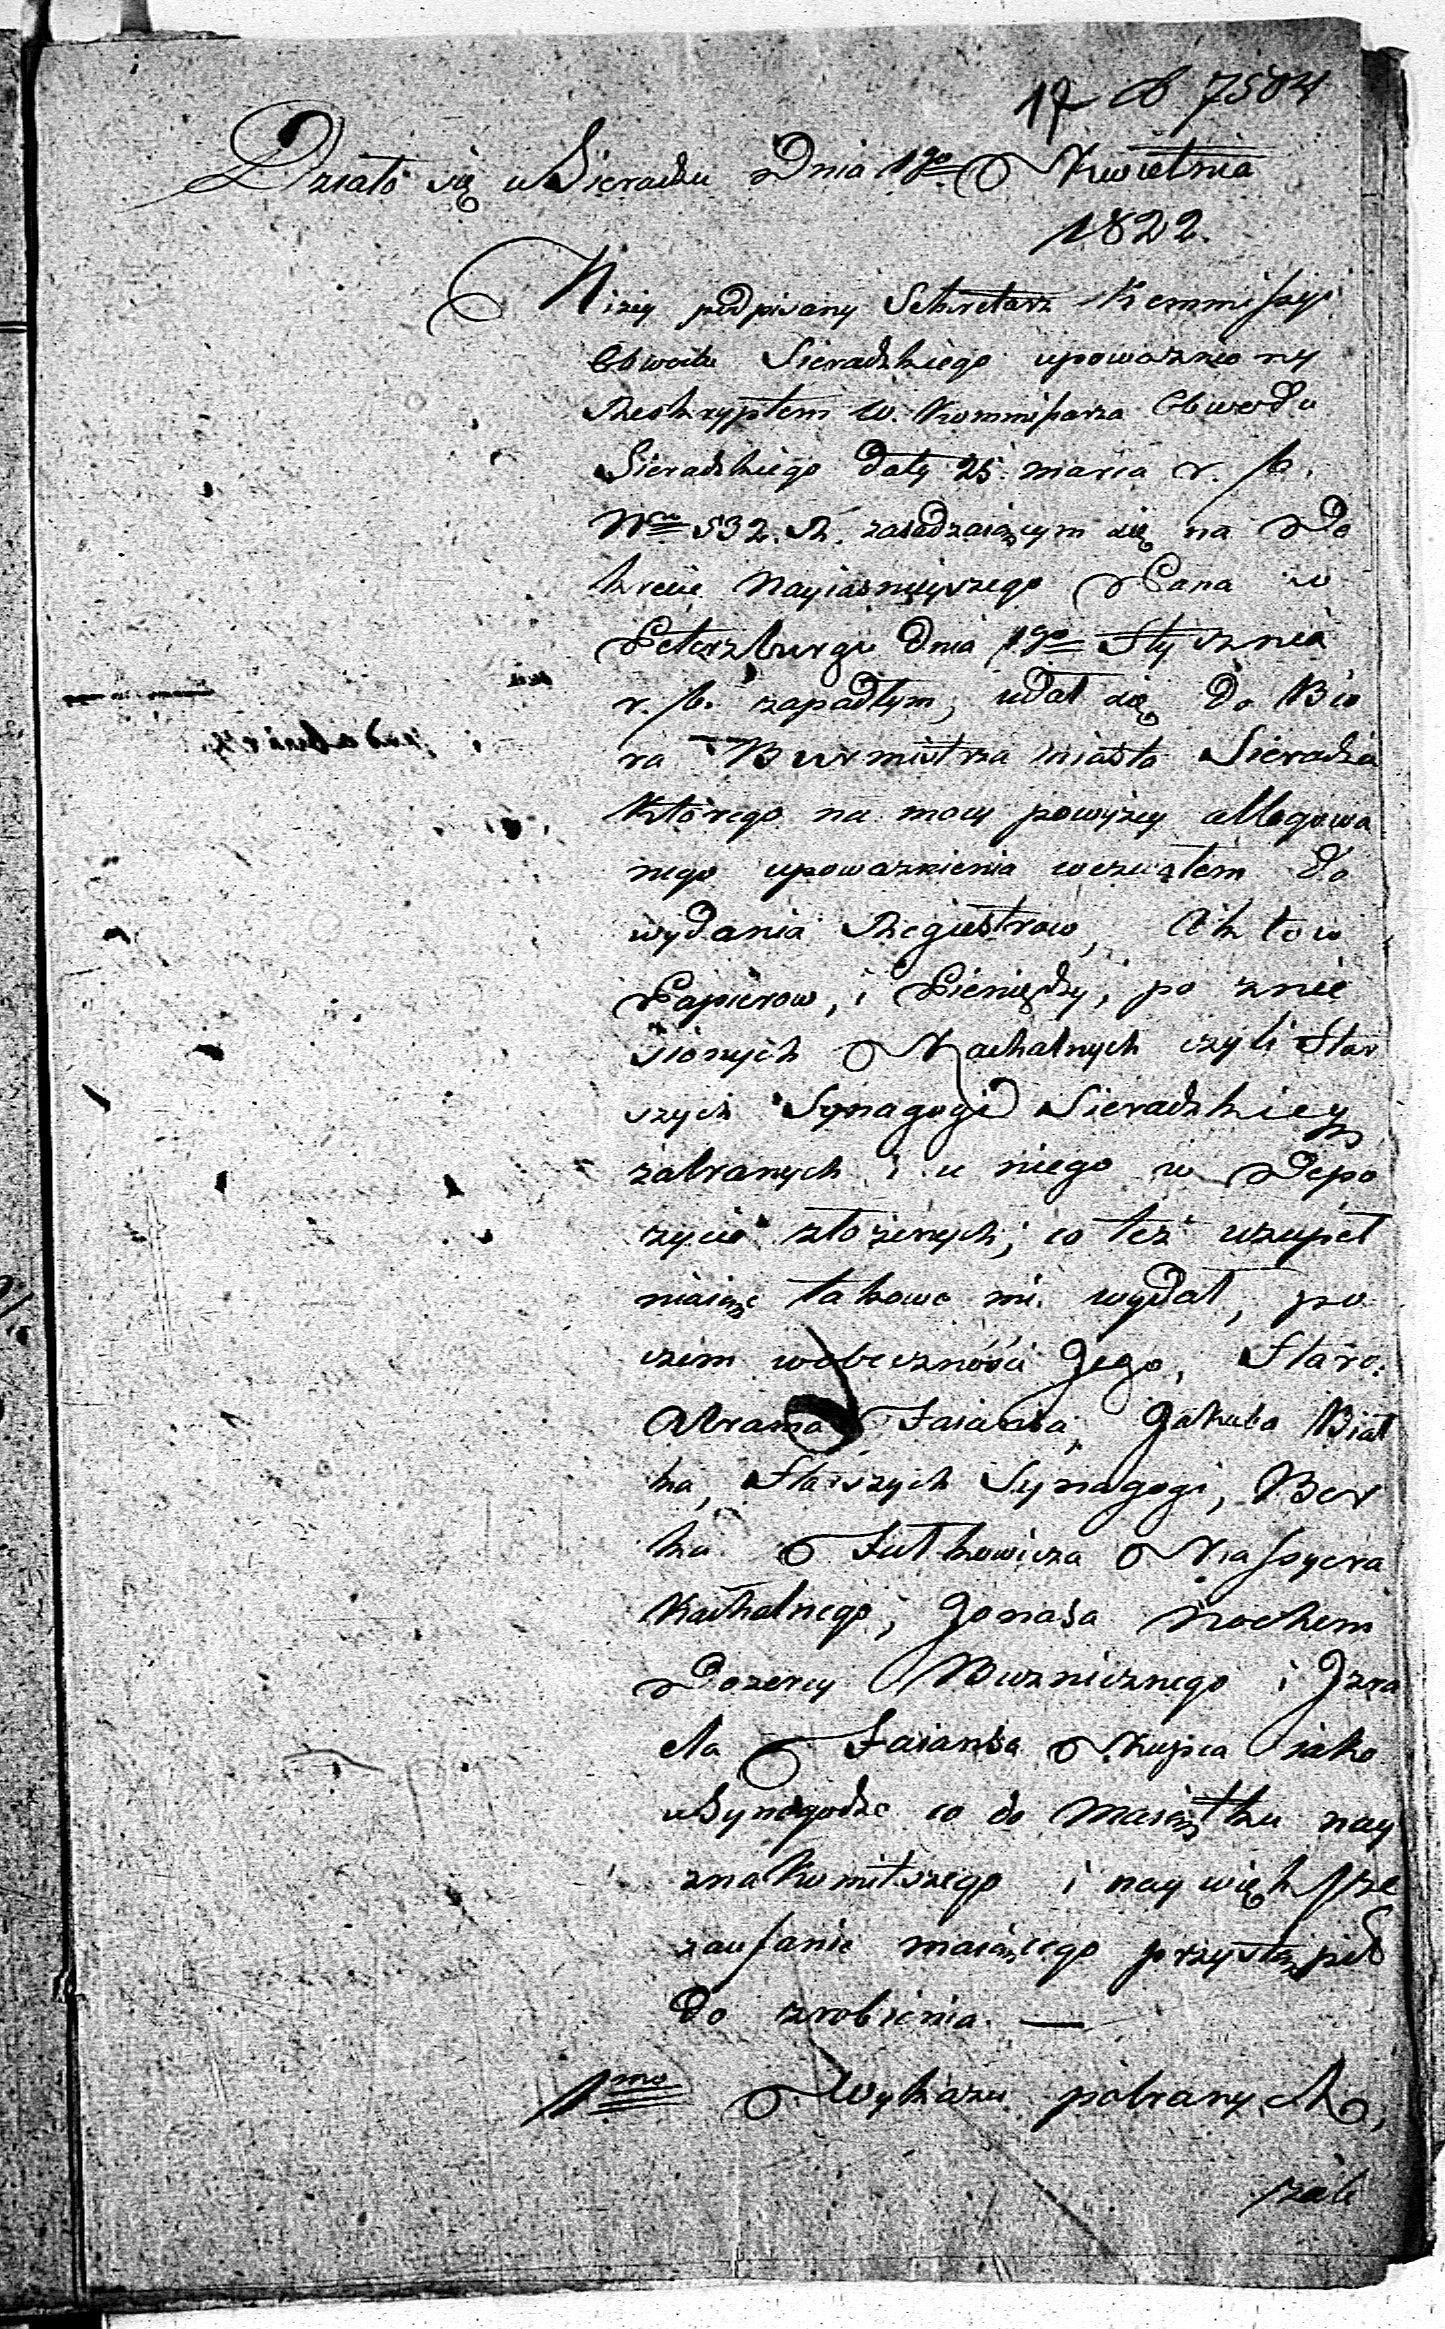 17 ad 7504
Działo się w Sieradzu Dnia 1go Kwietnia
1822.
Niżey podpisany Sekretarz Kommissyi
Obwodu Sieradzkiego upoważniony
Reskryptem W. Kommissarza Obwodu
Sieradzkiego daty 25. marca r. b.
Nro 532. R. zasadzaiącym się na De
krecie Nayiaśnieyszego Pana w
Peterzburgu dnia 1go Stycznia
r. b. zapadłym, udał się do Biu
ra Burmistrza miasta Sieradza
którego na mocy powyżey allegowa
nego upoważnienia wezwałem do
wydania Regiestrow, Aktow
Papierow, i Pieniędzy, po znie
sionych Kachalnych czyli Star
szych Synagogi Sieradzkiey
zabranych i u niego w Depo
zycie złożonych; co też uzupeł
niaiąc takowe mi wydał, po
czem w obeczności Jego, Staro.
Abrama Faiansa, Jakuba Biał
ka, Starszych Synagogi, Ber
ka Futkowicza Kassyera
Kachalnego, Jonasa Nochem
Dozorcy Bużnicznego i Izra
ela Faiansa Kupca iako
w Synagodze co do Maiątku nay
znakomitszego i naywiększe
zaufanie maiącego przystąpił
do zrobienia. —
1mo Wykazu pobranych,